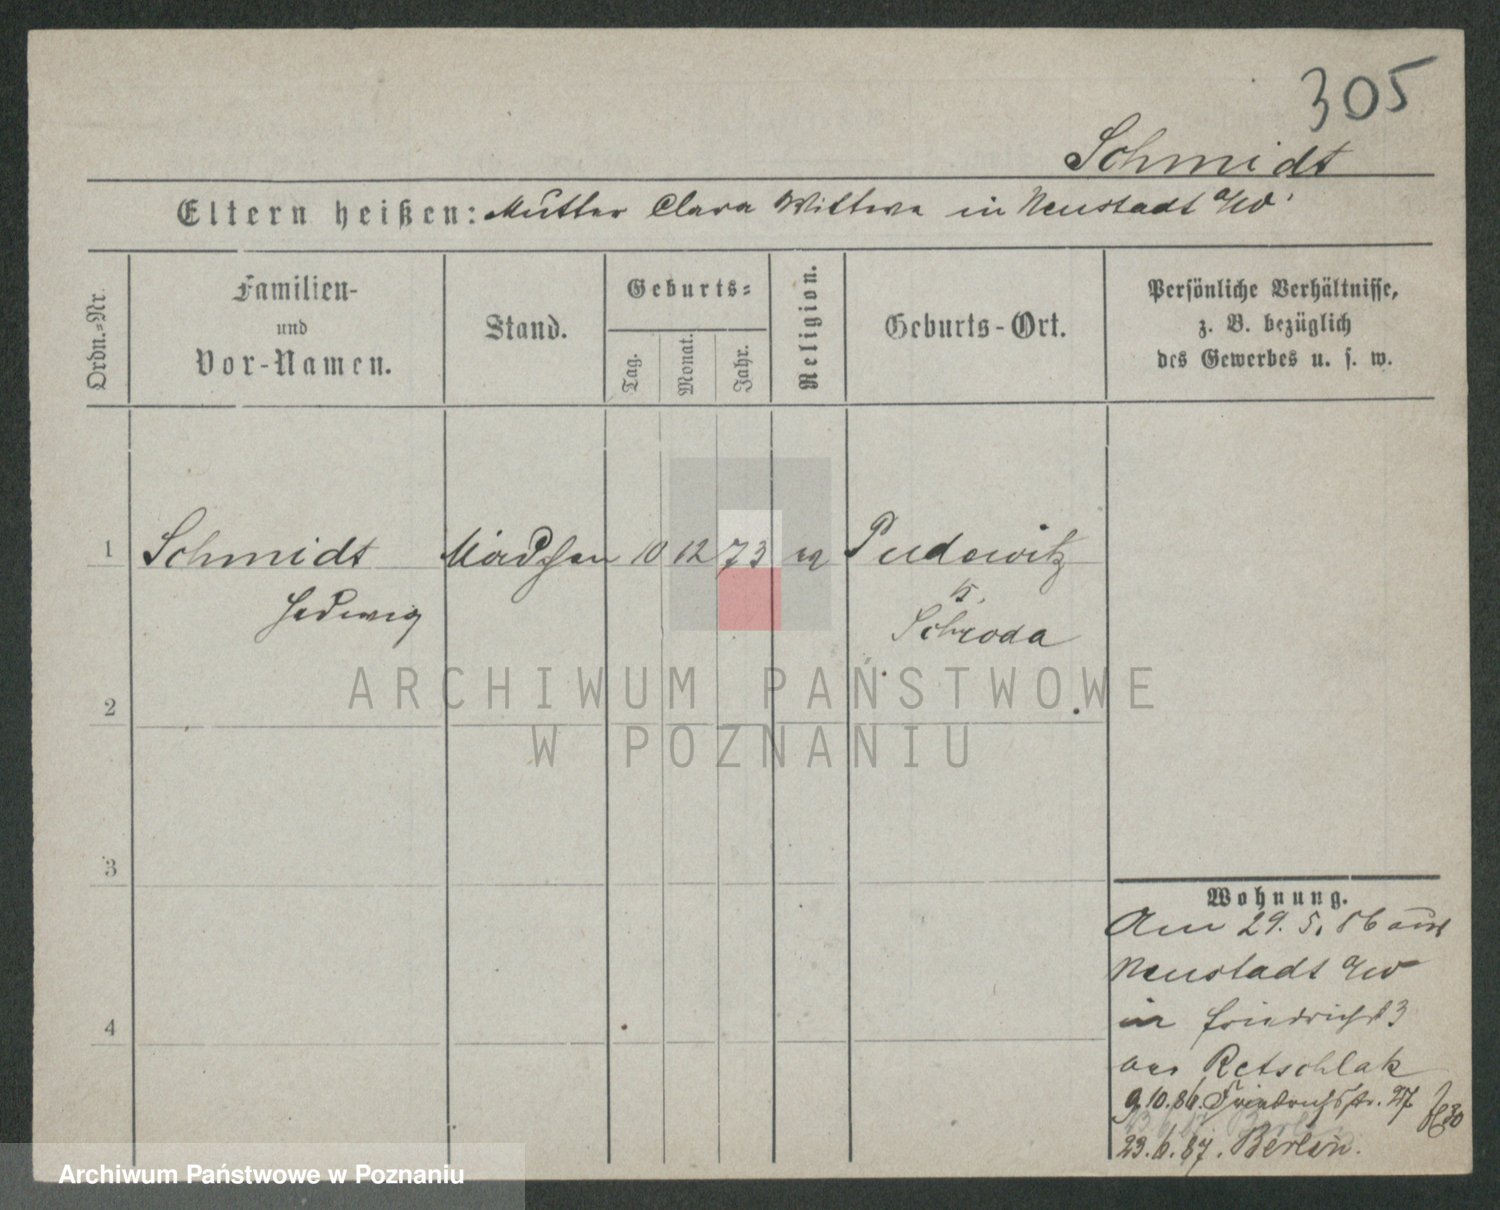 305
Schmidt
Eltern heißen: Mutter Clara Wittwe in Neustadt a/W.
Ordn.-Nr.
Familien-
und
Vor-Namen.
Stand.
Geburts-
Tag.
Monat.
Jahr.
Religion.
Geburts-Ort.
Persönliche Verhältnisse,
z. B. bezüglich
des Gewerbes u. s. w.
1 Schmidt Mädchen 10 12 73 Pudewitz
Hedwig
Schroda
2
3
4
Wohnung.
Am 29. 5. 86 aus
Neustadt a/W
in Friedrichst 3
Retschlak
9.10.86. Friedrichsstr. 27
23.6.87. Berlin.
ARCHIWUM PAŃSTWOWE
W POZNANIU
Archiwum Państwowe w Poznaniu